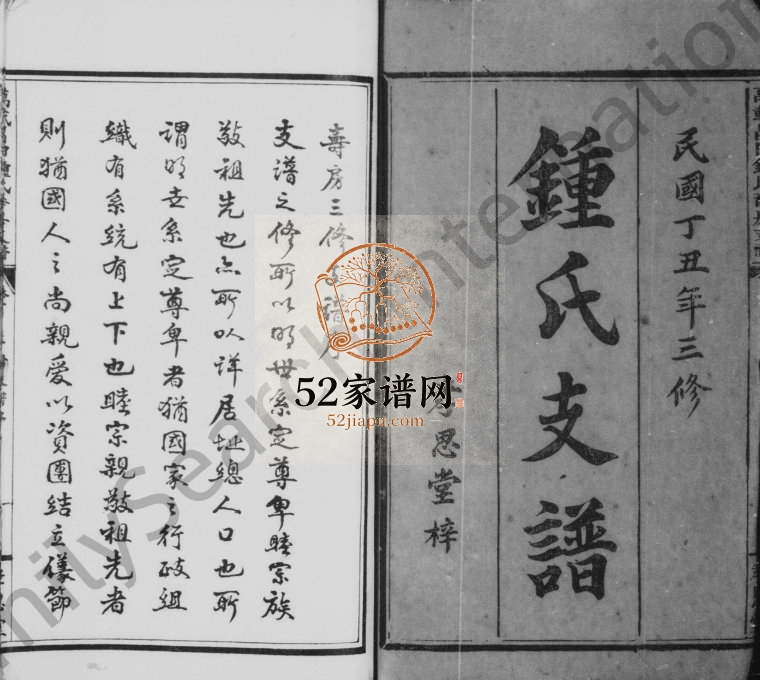 民國丁丑年三修
鍾氏支譜
思堂梓
壽房三修
支譜之修所以明世系定尊卑睦宗族
敬祖先也亦所以詳居址總人口也所
謂明世系定尊卑者猶國家之行政組
織有系統有上下也睦宗親敬祖先者
則猶國人之尚親愛以資團結立儀節
52家谱网
52jiapu.com
FamilySearch International